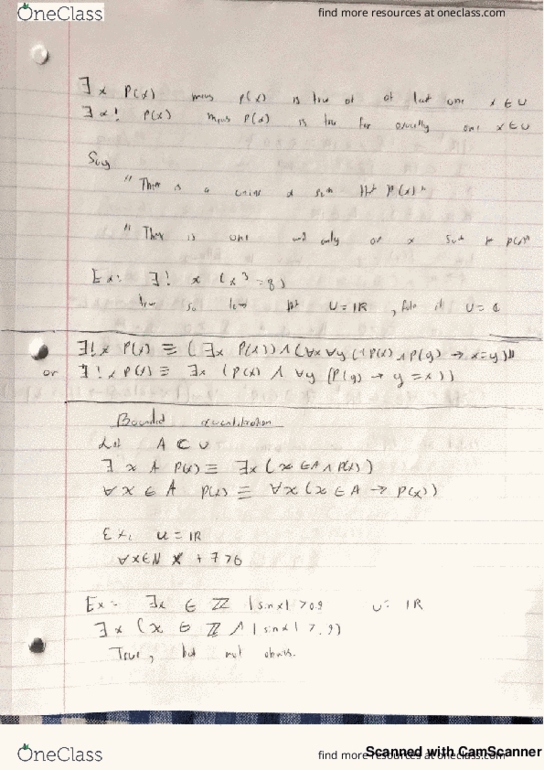 OneClass
find more resources at oneclass.com
∃x P(x) means p(x) is true at at least one x ∈ U
∃x! P(x) means P(x) is true for exactly one x ∈ U
Say
"There is a unique x such that P(x)"
"There is one and only one x such
Ex: ∃! x (x³ = 8)
U = IR, false if U = ℂ
∃!x P(x) ≡ (∃x P(x)) ∧ (∀x ∀y ((P(x) ∧ P(y) → x=y))
or ∃!x P(x) ≡ ∃x (P(x) ∧ ∀y (P(y) → y = x))
Bounded quantification
Let A ⊂ U
∃ x A P(x) ≡ ∃x (x ∈ A ∧ P(x))
∀x ∈ A P(x) ≡ ∀x (x ∈ A → P(x))
Ex: U = IR
∀x∈N x + 7 > 0
Ex: ∃x ∈ ℤ |sinx| > 0.9 U = IR
∃x (x ∈ ℤ ∧ |sinx| > .9)
True, but not obvious.
OneClass
find more resources at oneclass.com
Scanned with CamScanner